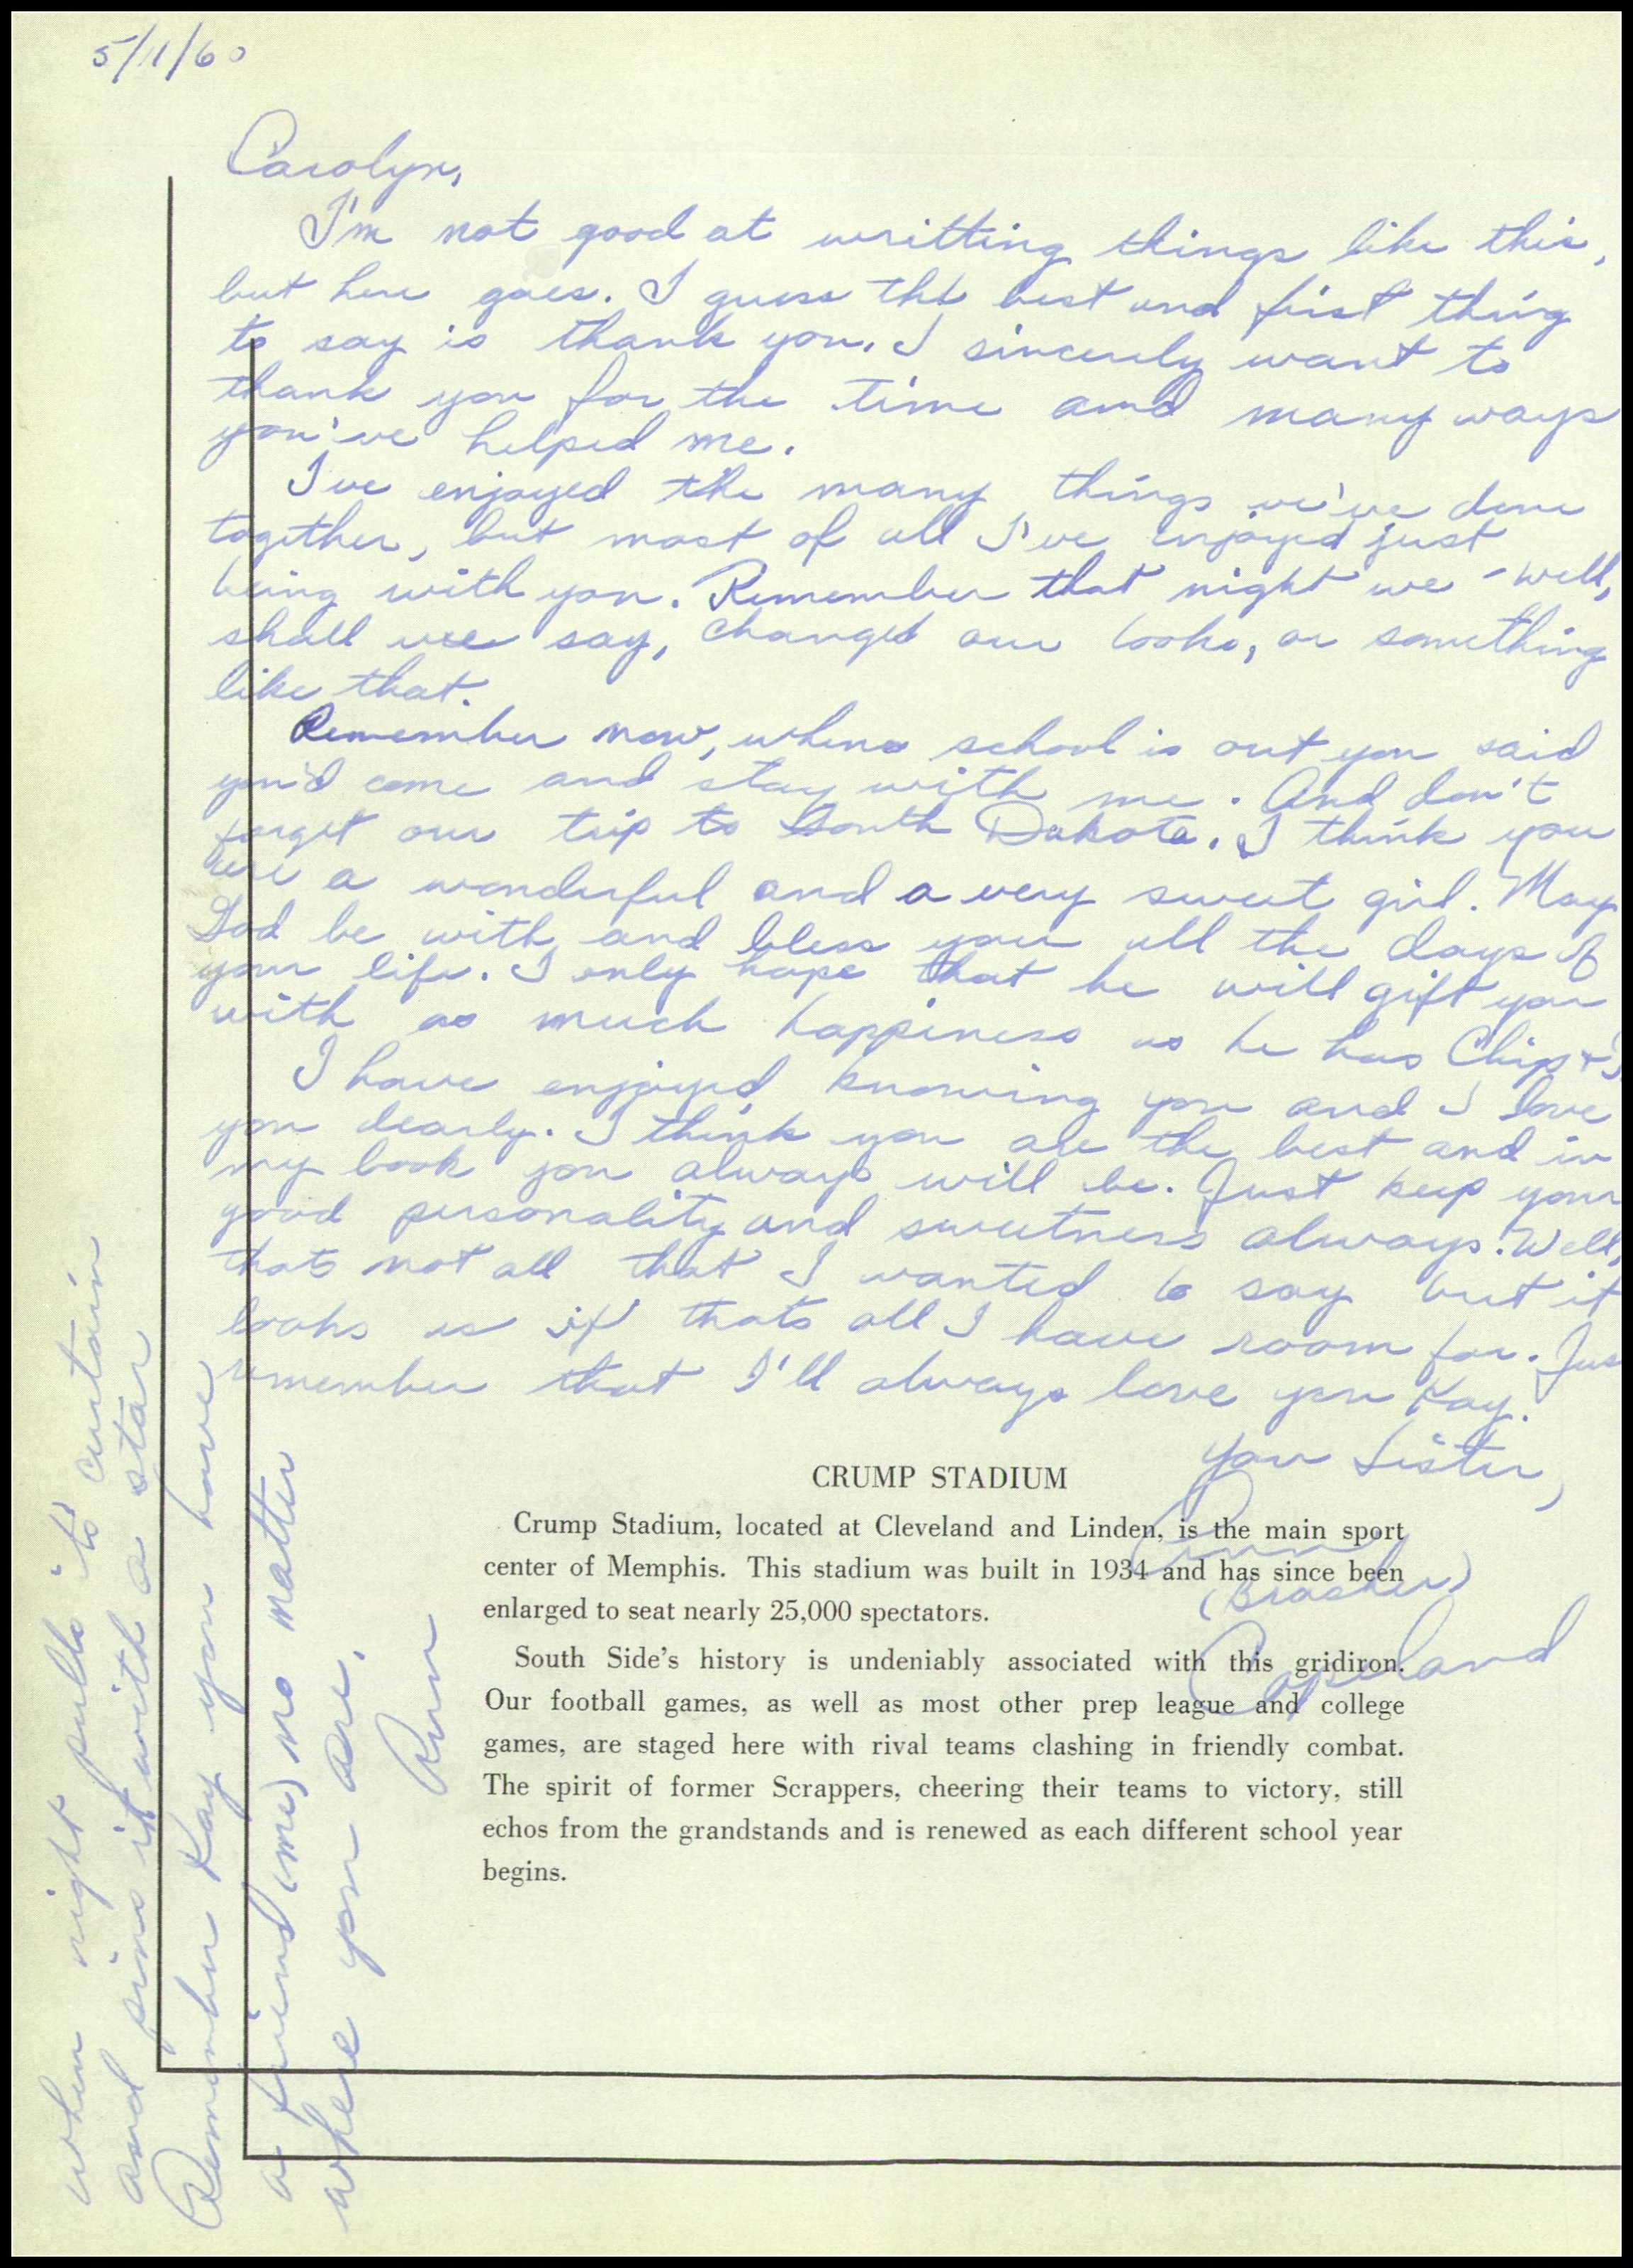 5/1/60
Carolyn,
I'm not good at writting things like this,
but here goes. I guess the best and first thing
to say is thank you. I sincerely want to
thank you for the time and many ways
you've helped me.
I've enjoyed the many things we've done
together, but most of all I've enjoyed just
being with you. Remember that night we - well,
shall we say, changed our looks, or something
like that.
Remember now, when school is out you said
you'd come and stay with me. And don't
forget our trip to South Dakota. I think you
are a wonderful and a very sweet girl. May
God be with and bless you all the days of
your life. I only hope that he will gift you
with as much happiness as he has Chip + I
I have enjoyed knowing you and I love
you dearly. I think you are the best and in
my book you always will be. Just keep your
good personality and sweetness always. Well,
thats not all that I wanted to say but it
looks as if thats all I have room for. Jus
remember that I'll always love you Kay.
Your Sister,
Ann
(Brasher)
Copeland
CRUMP STADIUM
Crump Stadium, located at Cleveland and Linden, is the main sport
center of Memphis. This stadium was built in 1934 and has since been
enlarged to seat nearly 25,000 spectators.
South Side's history is undeniably associated with this gridiron.
Our football games, as well as most other prep league and college
games, are staged here with rival teams clashing in friendly combat.
The spirit of former Scrappers, cheering their teams to victory, still
echos from the grandstands and is renewed as each different school year
begins.
When night pulls it's curtain
and pins it with a star
Remember Kay you have
a friend (me) no matter
where you are.
Ann